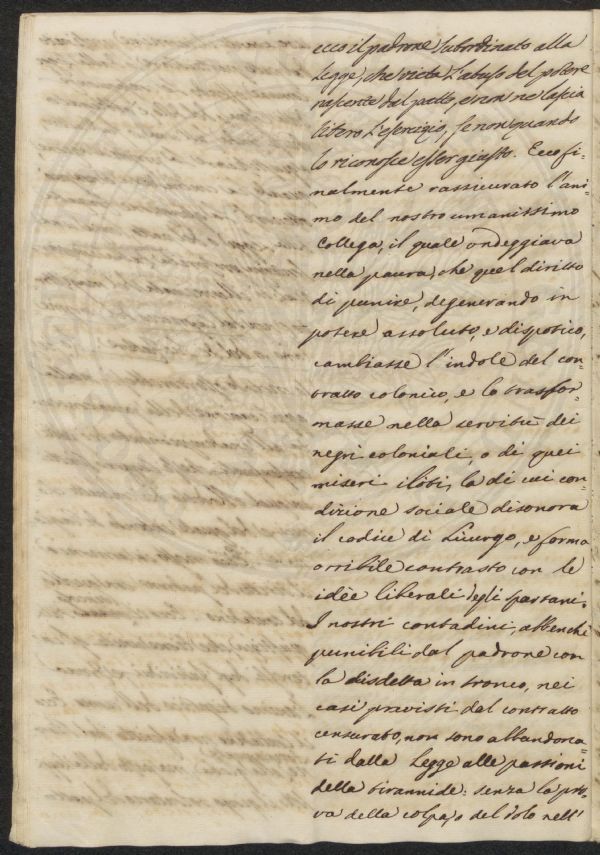 ecco il padrone subordinato alla
Legge, che vieta l'abuso del potere
nascente dal patto, e non ne lascia
libero l'esercizio, se non quando
lo riconosce esser giusto. Ecco fi-
nalmente rassicurato l'ani-
mo del nostro umanissimo
Collega, il quale ondeggiava
nella paura, che quel diritto
di punire, degenerando in
potere assoluto, e dispotico,
cambiasse l'indole del con-
tratto colonico, e lo trasfor-
masse nella servitù dei
negri coloniali, o di quei
miseri iloti, la di cui con-
dizione sociale disonora
il codice di Licurgo, e forma
orribile contrasto con le
idèe liberali degli spartani.
I nostri contadini, abbenchè
punibili dal padrone con
la disdetta in tronco, nei
casi previsti dal contratto
censurato, non sono abbandona-
ti dalla Legge alle passioni
della tirannide: senza la pro-
va della colpa, o del dolo nell'